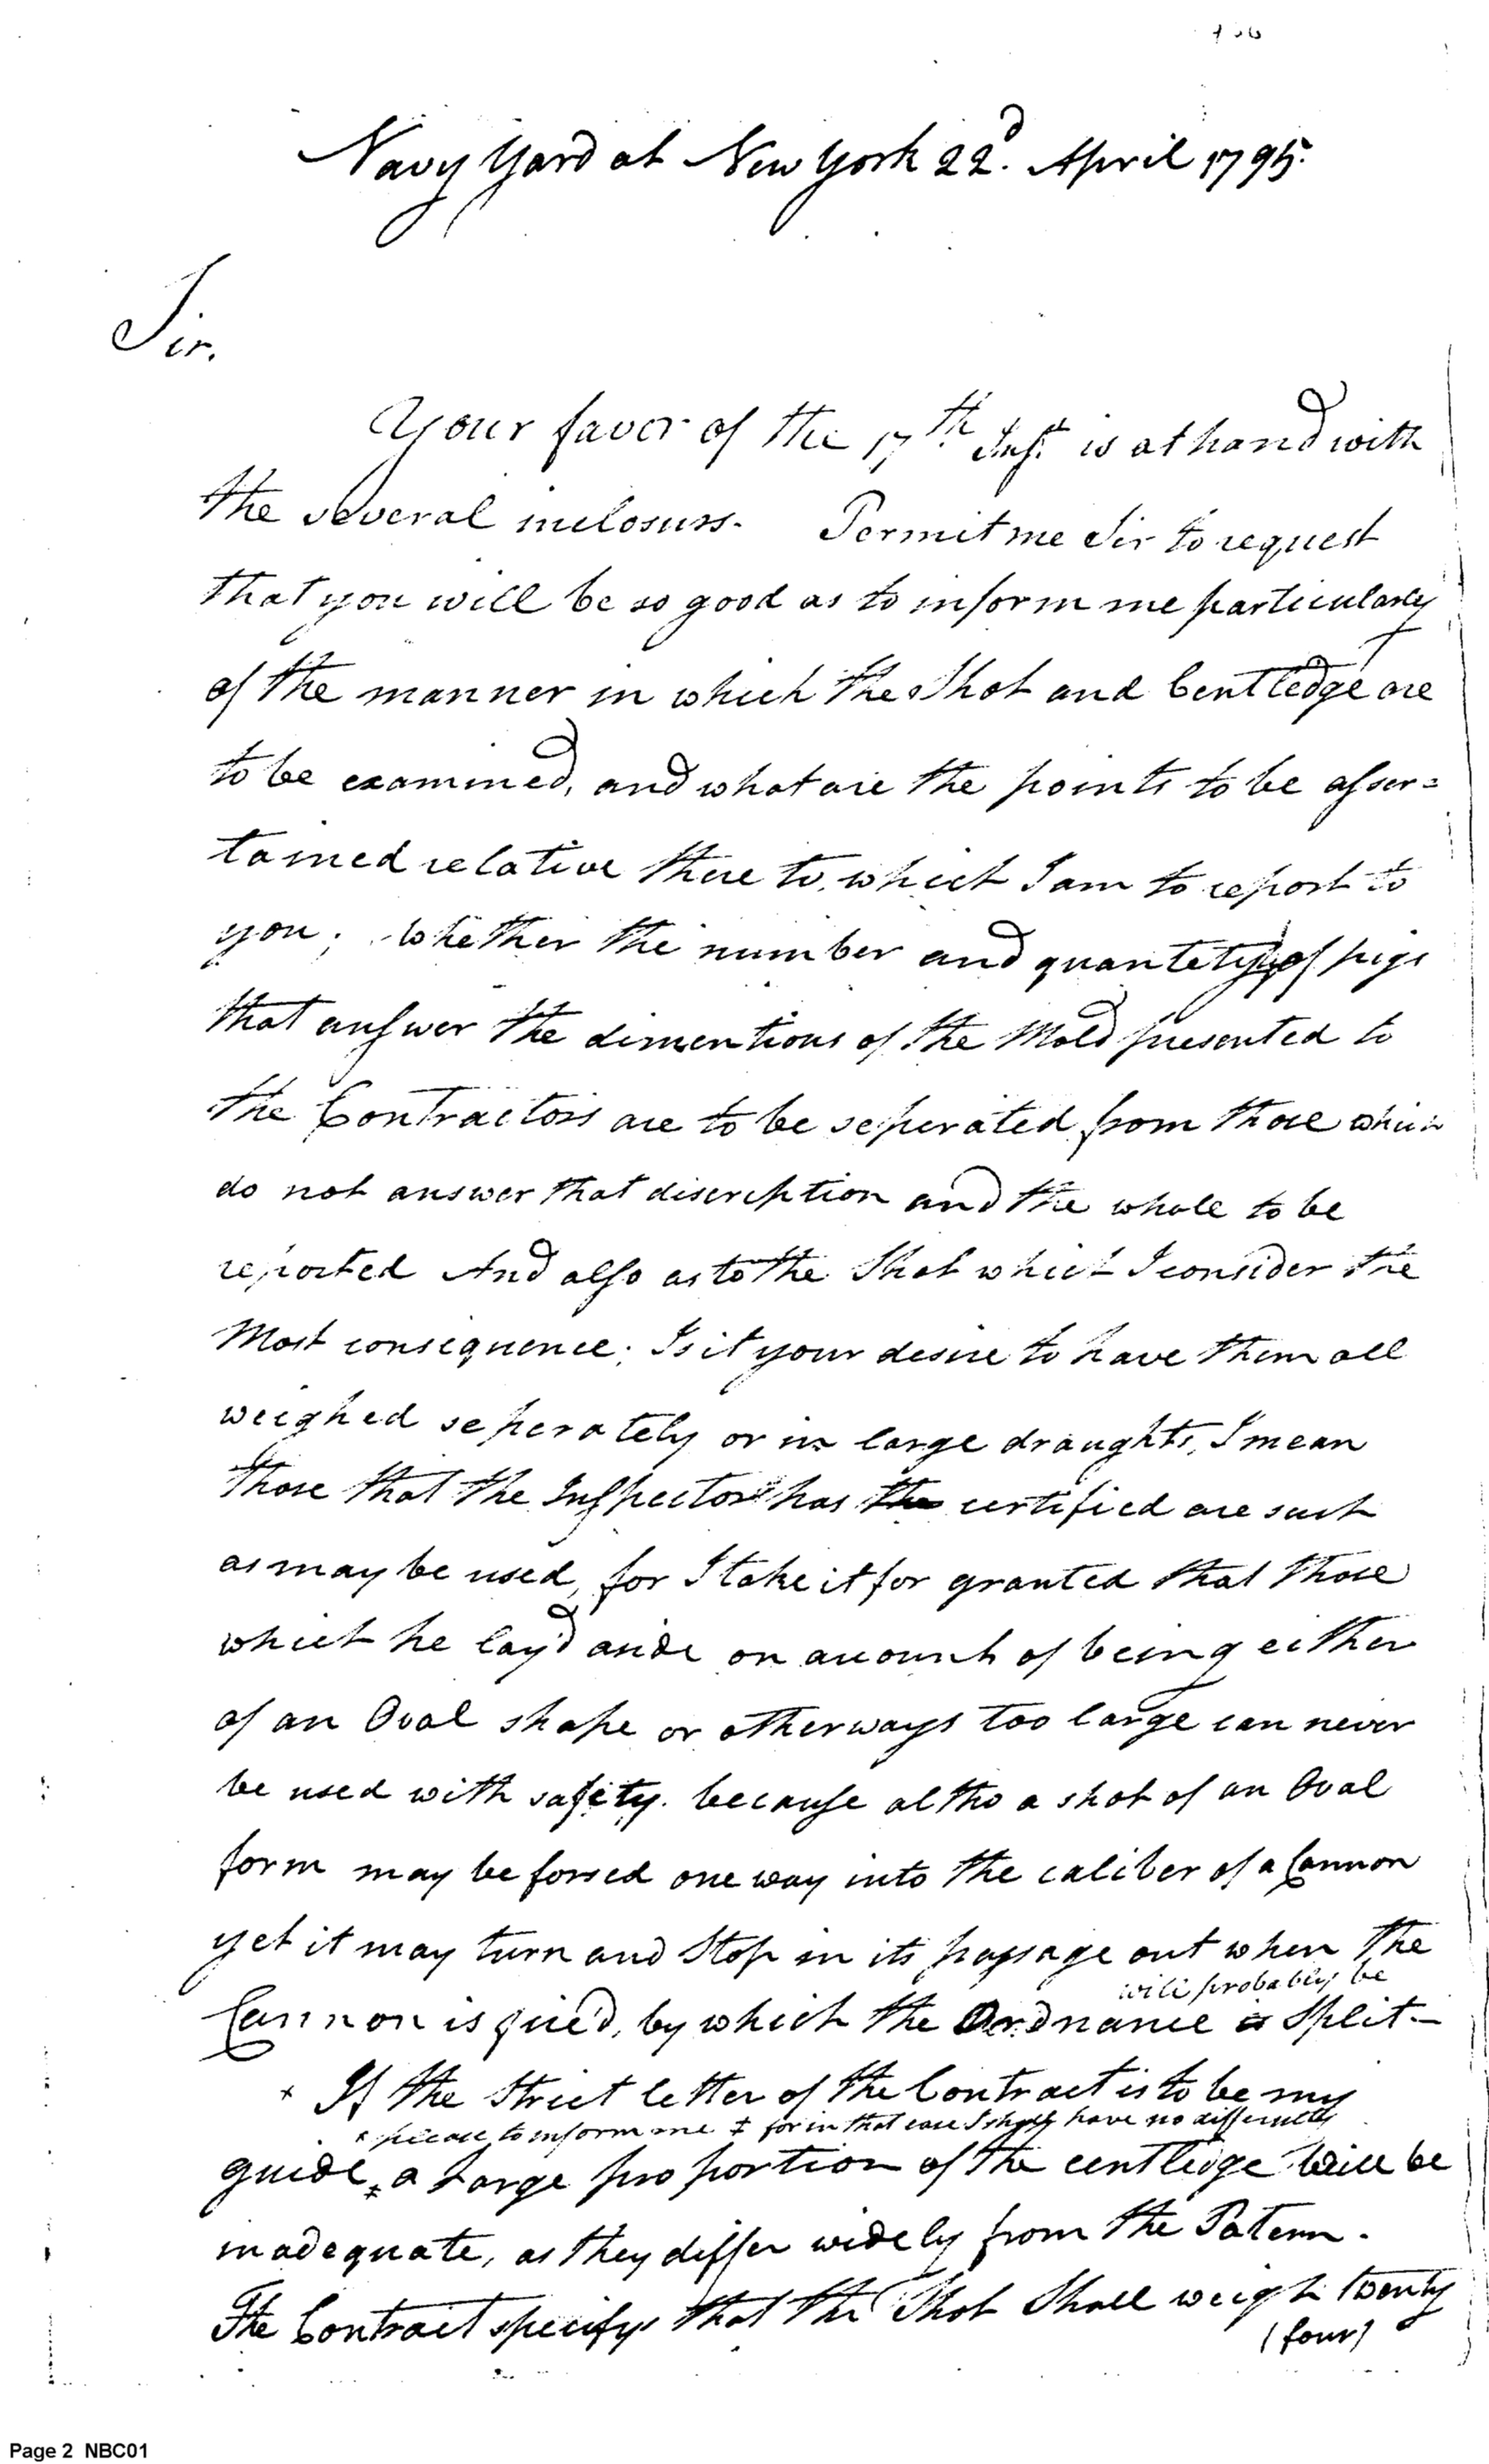 Navy Yard at New York 22d. April 1795.
Sir.
Your favor of the 17th. Inst. is at hand with
the several inclosurs. Permit me Sir to request
that you will be so good as to inform me particularly
of the manner in which the Shot and Centledge are
to be examined, and what are the points to be asser=
tained relative there to, which I am to report to
you; whether the number and quantety of pigs
that answer the dimentions of the Mold presented to
the Contractors are to be seperated from those which
do not answer that discreption and the whole to be
reported And also as to the Shot which I consider the
Most consequence; Is it your desire to have them all
weighed seperately or in large draughts, I mean
those that the Inspector has the certified are such
as may be used, for I take it for granted that those
which he lay'd aside on account of being either
of an Oval shape or otherways too large can never
be used with safety. because altho a shot of an Oval
form may be forsed one way into the caliber of a Cannon
yet it may turn and Stop in its passage out when the
will probably be
Cannon is fire'd, by which the Ordnance is Split—
* If the Strict letter of the Contract is to be my
* please to inform me ‡ for in that case I shall have no difficulty
guide ‡ a Large proportion of the centledge will be
inadequate, as they differ widely from the Patern.
The Contract specifys that the Shot Shall weigh twenty
(four)
Page 2 NBC01